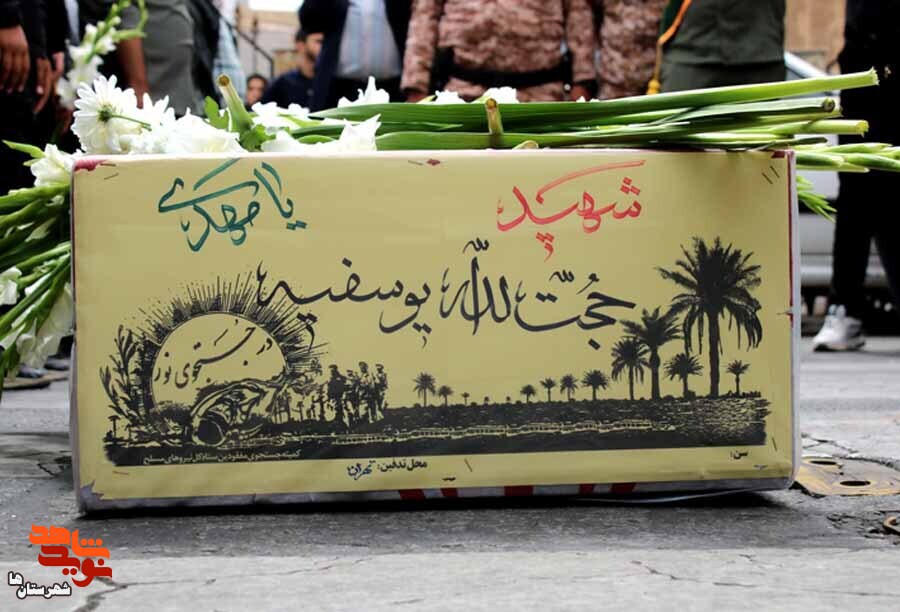 شهید
یا مهدی
حجّت الله یوسفیه
در جستجوی نور
کمیته جستجوی مفقودین ستاد کل نیروهای مسلح
محل تدفین: تهران
سن:
نوید شاهد
شهرستان‌ها